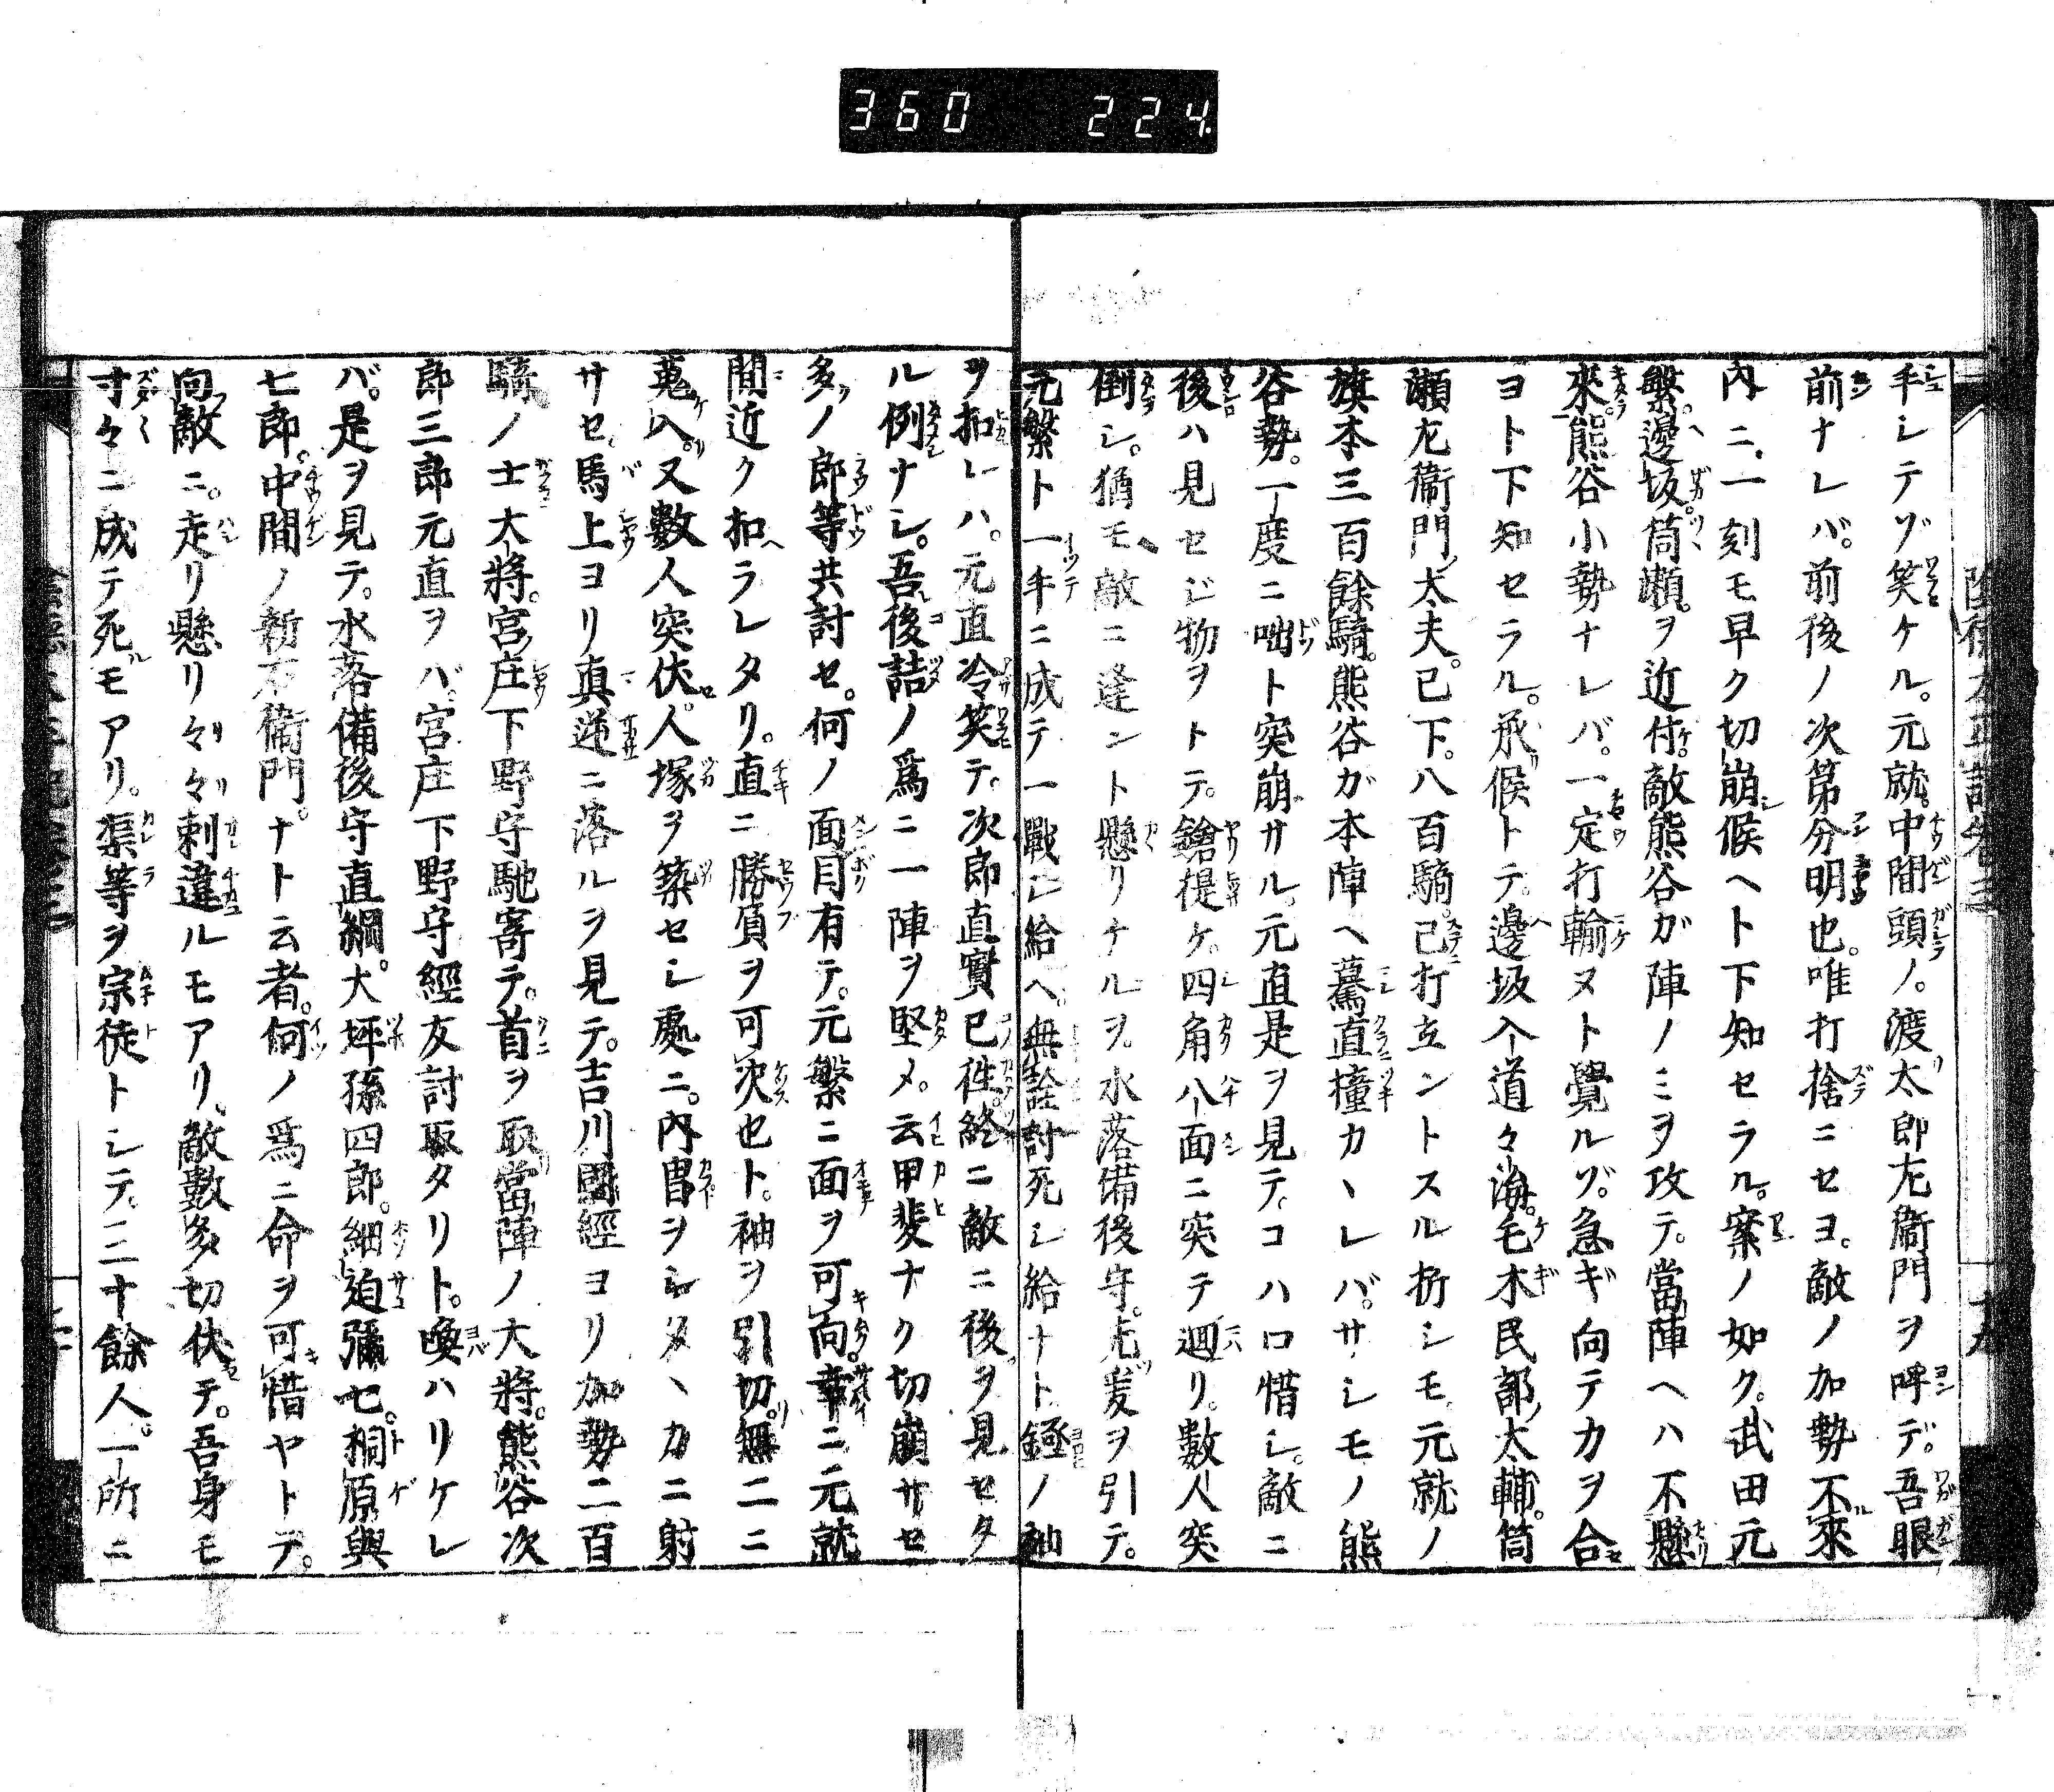 360 224
手シテゾ笑ケル。元就。中間頭ノ。渡太郎左衞門ヲ呼デ。吾眼
前ナレバ。前後ノ次第分明也。唯打捨ニセヨ。敵ノ加勢不來
内ニ。一刻モ早ク切崩候ヘト下知セラル。案ノ如ク。武田元
繁邊坂。筒瀬。ヲ近付。敵熊谷ガ陣ノミヲ攻テ。當陣ヘハ不懸
來。熊谷小勢ナレバ。一定打輸ヌト覺ルゾ。急ギ向テカヲ合
ヨト下知セラル。承候トテ。邊坂入道々海。毛木民部太輔。筒
瀬左衞門太夫。已下。八百騎。已打立ントスル折シモ。元就ノ
旗本三百餘騎。熊谷ガ本陣ヘ驀直撞カヽレバ。サシモノ熊
谷勢。一度ニ咄ト突崩サル。元直是ヲ見テ。コハ口惜シ。敵ニ
後ハ見セジ物ヲトテ。鎗提ケ。四角八面ニ突テ廻リ。數人突
倒シ。猶モ敵ニ逢ント懸リケルヲ。水落備後守。先爰ヲ引テ。
元繁ト一手ニ成テ一戰シ給ヘ。無詮討死シ給ナト鎧ノ袖
ヲ扣レハ。元直冷笑テ。次郎直實已徃。終ニ敵ニ後ヲ見セタ
ル例ナシ。吾後詰ノ爲ニ一陣ヲ堅メ。云甲斐ナク切崩サセ
多ノ郎等共討セ。何ノ面目有テ。元繁ニ面ヲ可向。幸ニ元就
間近ク扣ラレタリ。直ニ勝負ヲ可決也ト。袖ヲ引切。無二ニ
蒐入。又數人突伏。人塚ヲ築セシ處ニ。内冑ヲシタヽカニ射
サセ馬上ヨリ真逆ニ落ルヲ見テ。吉川國經ヨリ加勢二百
騎ノ士大將。宮庄下野守馳寄テ。首ヲ取。當陣ノ大將。熊谷次
郎三郎元直ヲバ。宮庄下野守經友討取タリト。喚ハリケレ
バ。是ヲ見テ。水落備後守直綱。大坪孫四郎。細迫彌七。桐原與
七郎。中間ノ新右衞門。ナト云者。何ノ爲ニ命ヲ可惜ヤトテ。
向敵ニ。走リ懸リ々々刺違ルモアリ。敵數多切伏テ。吾身モ
寸々ニ成テ死モアリ。渠等ヲ宗徒トシテ。三十餘人。一所ニ